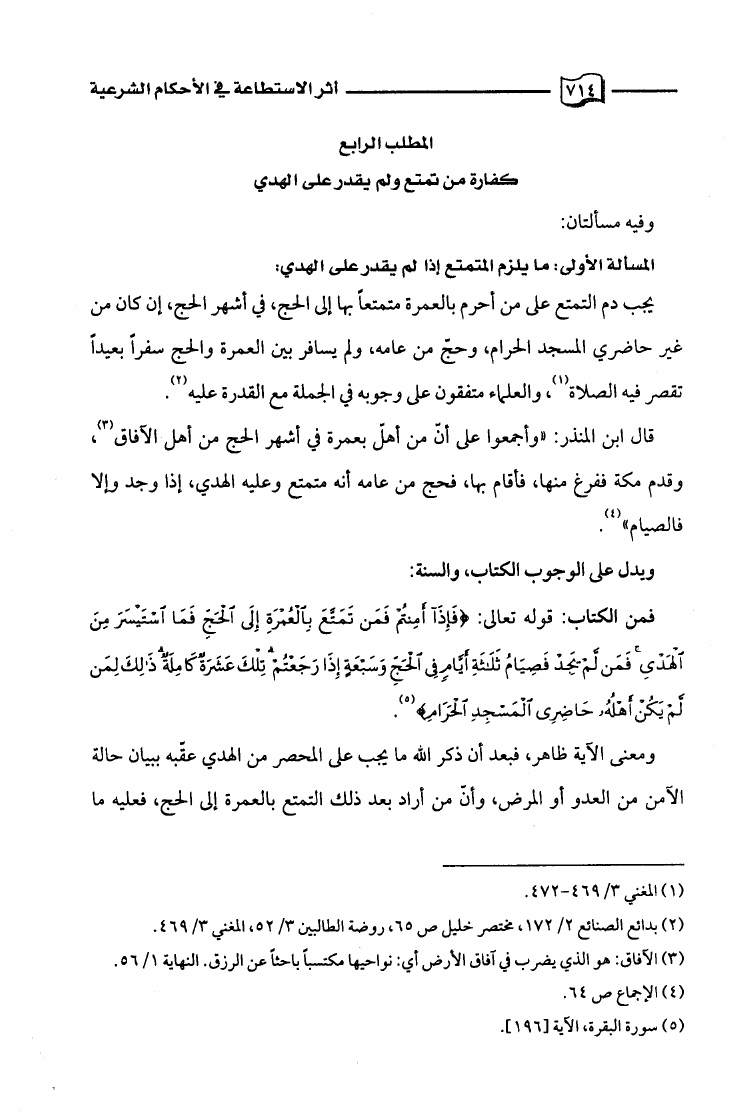 ٧١٤ أثر الاستطاعة في الأحكام الشرعية
المطلب الرابع
كفارة من تمتع ولم يقدر على الهدي
وفيه مسألتان:
المسألة الأولى: ما يلزم المتمتع إذا لم يقدر على الهدي:
يجب دم التمتع على من أحرم بالعمرة متمتعاً بها إلى الحج، في أشهر الحج، إن كان من
غير حاضري المسجد الحرام، وحجّ من عامه، ولم يسافر بين العمرة والحج سفراً بعيداً
تقصر فيه الصلاة(١)، والعلماء متفقون على وجوبه في الجملة مع القدرة عليه(٢).
قال ابن المنذر: «وأجمعوا على أنّ من أهلّ بعمرة في أشهر الحج من أهل الآفاق(٣)،
وقدم مكة ففرغ منها، فأقام بها، فحج من عامه أنه متمتع وعليه الهدي، إذا وجد وإلا
فالصيام»(٤).
ويدل على الوجوب الكتاب، والسنة:
فمن الكتاب: قوله تعالى: ﴿فَإِذَآ أَمِنتُمْ فَمَن تَمَتَّعَ بِٱلْعُمْرَةِ إِلَى ٱلْحَجِّ فَمَا ٱسْتَيْسَرَ مِنَ
ٱلْهَدْيِ ۚ فَمَن لَّمْ يَجِدْ فَصِيَامُ ثَلَٰثَةِ أَيَّامٍ فِى ٱلْحَجِّ وَسَبْعَةٍ إِذَا رَجَعْتُمْ ۗ تِلْكَ عَشَرَةٌ كَامِلَةٌ ۗ ذَٰلِكَ لِمَن
لَّمْ يَكُنْ أَهْلُهُۥ حَاضِرِى ٱلْمَسْجِدِ ٱلْحَرَامِ﴾(٥).
ومعنى الآية ظاهر، فبعد أن ذكر الله ما يجب على المحصر من الهدي عقّبه ببيان حالة
الآمن من العدو أو المرض، وأنّ من أراد بعد ذلك التمتع بالعمرة إلى الحج، فعليه ما
(١) المغني ٣/ ٤٦٩-٤٧٢.
(٢) بدائع الصنائع ٢/ ١٧٢، مختصر خليل ص ٦٥، روضة الطالبين ٣/ ٥٢، المغني ٣/ ٤٦٩.
(٣) الآفاق: هو الذي يضرب في آفاق الأرض أي: نواحيها مكتسباً باحثاً عن الرزق. النهاية ١/ ٥٦.
(٤) الإجماع ص ٦٤.
(٥) سورة البقرة، الآية [١٩٦].